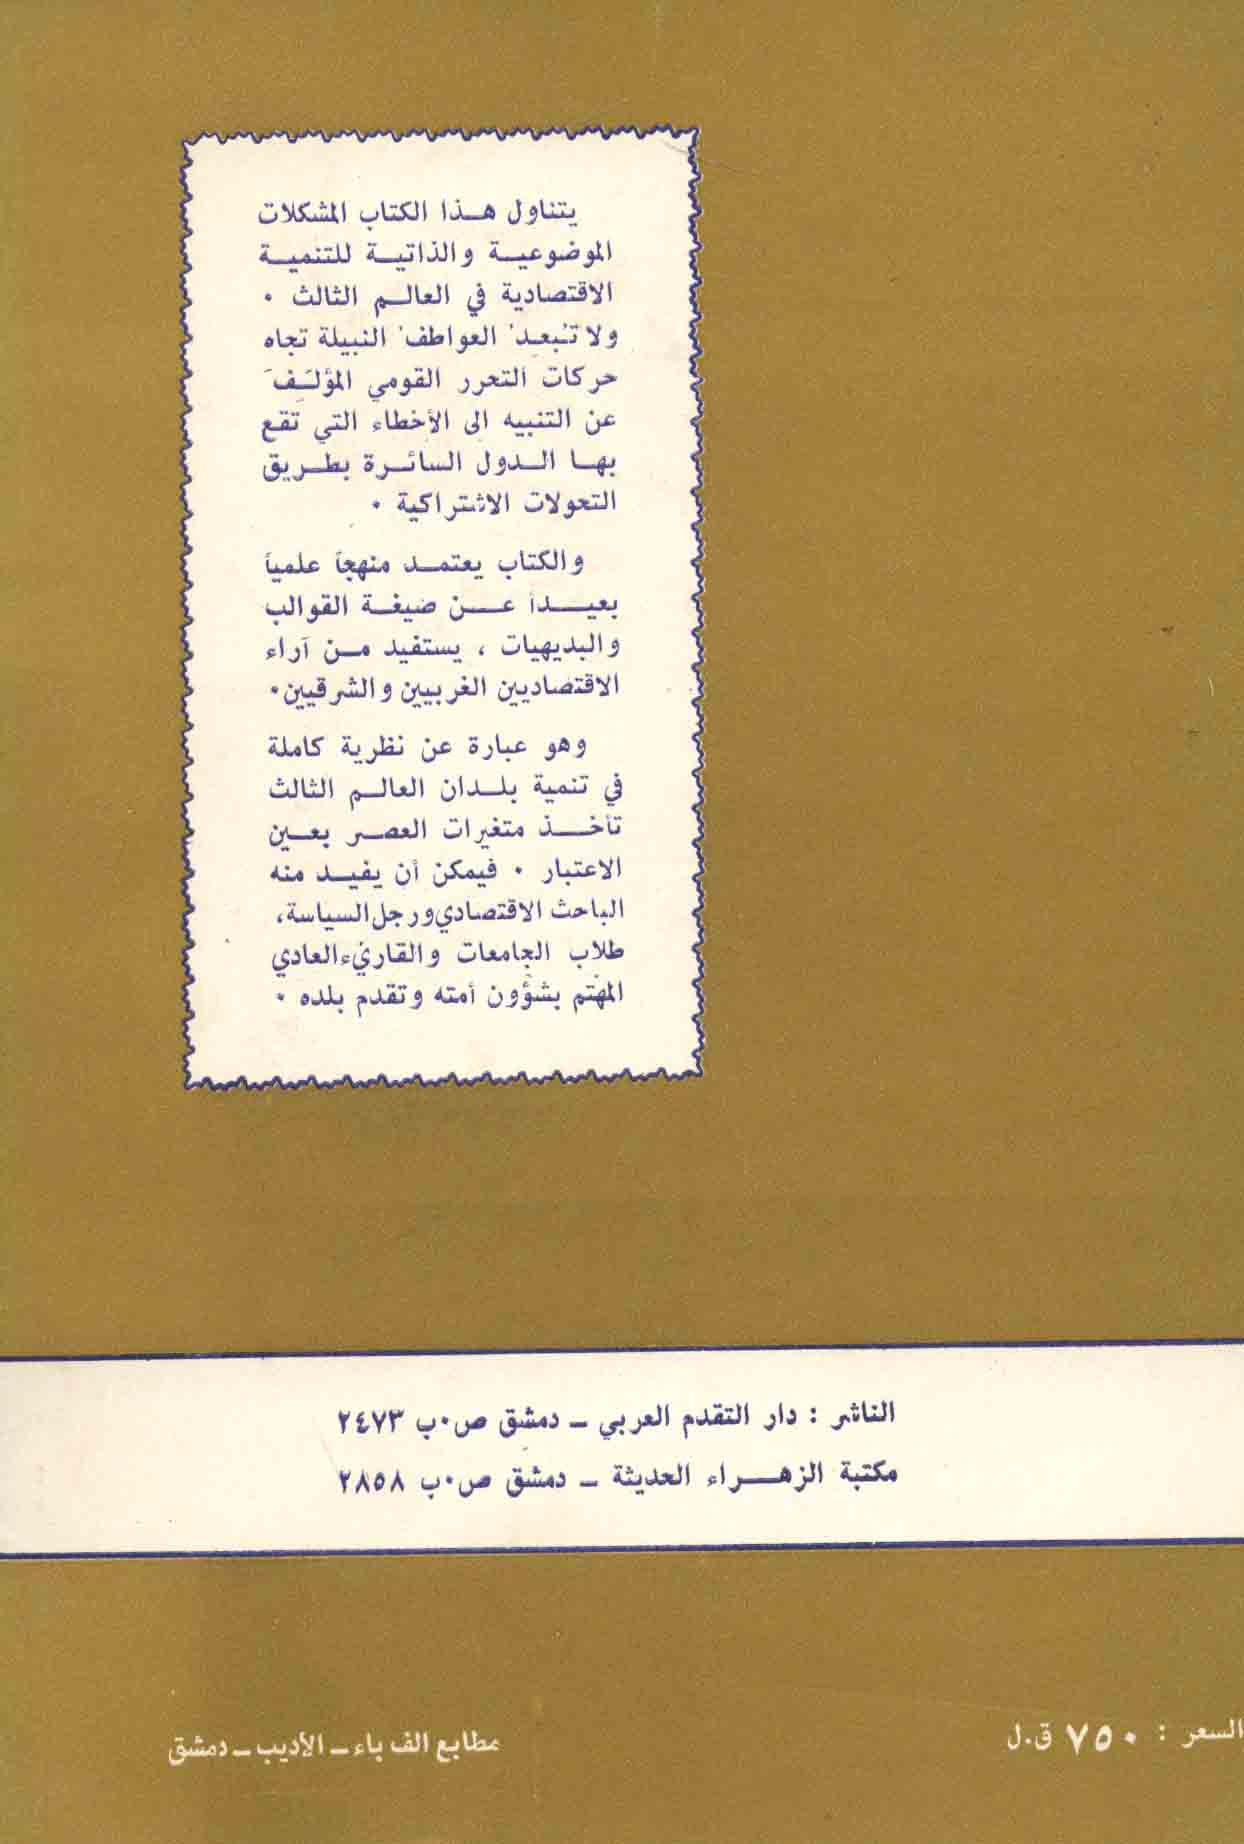 يتناول هـذا الكتاب المشكلات
الموضوعيـة والذاتيـة للتنميـة
الاقتصادية في العالـم الثالث ٠
ولا تُبعِدُ العواطفُ النبيلة تجاه
حركات التحرر القومي المؤلِّفَ
عن التنبيه الى الأخطاء التي تقع
بهـا الـدول السائـرة بطـريق
التحولات الاشتراكية ٠
والكتاب يعتمـد منهجاً علمياً
بعيـــداً عــن صيغـة القوالب
والبديهيات ، يستفيد مـن آراء
الاقتصاديين الغربيين والشرقيين٠
وهو عبارة عن نظرية كاملة
في تنمية بلـدان العالـم الثالث
تأخــذ متغيرات العصـر بعـين
الاعتبار ٠ فيمكن أن يفيـد منه
الباحث الاقتصادي ورجل السياسة،
طلاب الجامعات والقاريء العادي
المهتم بشؤون أمته وتقدم بلده ٠
الناشر : دار التقدم العربي ــ دمشق ص٠ب ٢٤٧٣
مكتبة الزهــراء الحديثة ــ دمشق ص٠ب ٢٨٥٨
السعر : ٧٥٠ ق.ل
مطابع الف باء ــ الأديب ــ دمشق